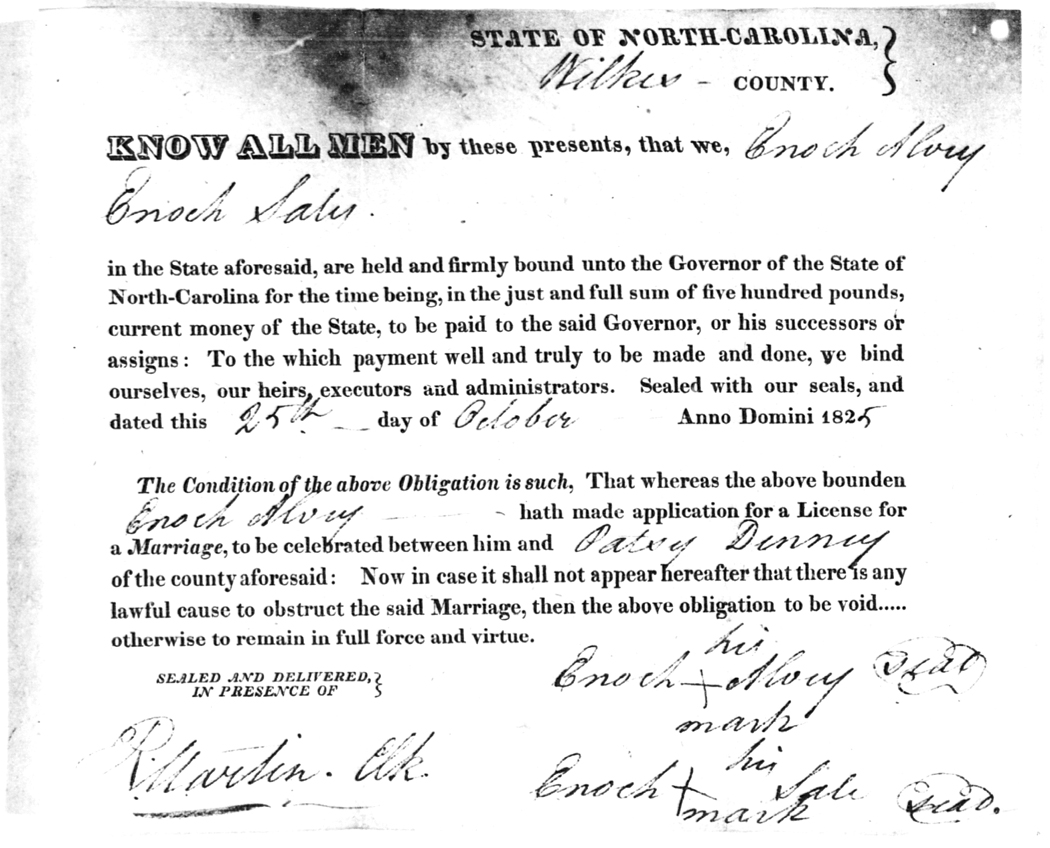 STATE OF NORTH-CAROLINA,
Wilkes - COUNTY.
KNOW ALL MEN by these presents, that we, Enoch Alvey
Enoch Sales.
in the State aforesaid, are held and firmly bound unto the Governor of the State of
North-Carolina for the time being, in the just and full sum of five hundred pounds,
current money of the State, to be paid to the said Governor, or his successors or
assigns: To the which payment well and truly to be made and done, we bind
ourselves, our heirs, executors and administrators. Sealed with our seals, and
dated this 25th day of October Anno Domini 1825
The Condition of the above Obligation is such, That whereas the above bounden
Enoch Alvey hath made application for a License for
a Marriage, to be celebrated between him and Patsy Denney
of the county aforesaid: Now in case it shall not appear hereafter that there is any
lawful cause to obstruct the said Marriage, then the above obligation to be void.....
otherwise to remain in full force and virtue.
SEALED AND DELIVERED,
IN PRESENCE OF
his
Enoch Alvey seal
mark
R. Martin. Clk.
his
Enoch Sale seal.
mark